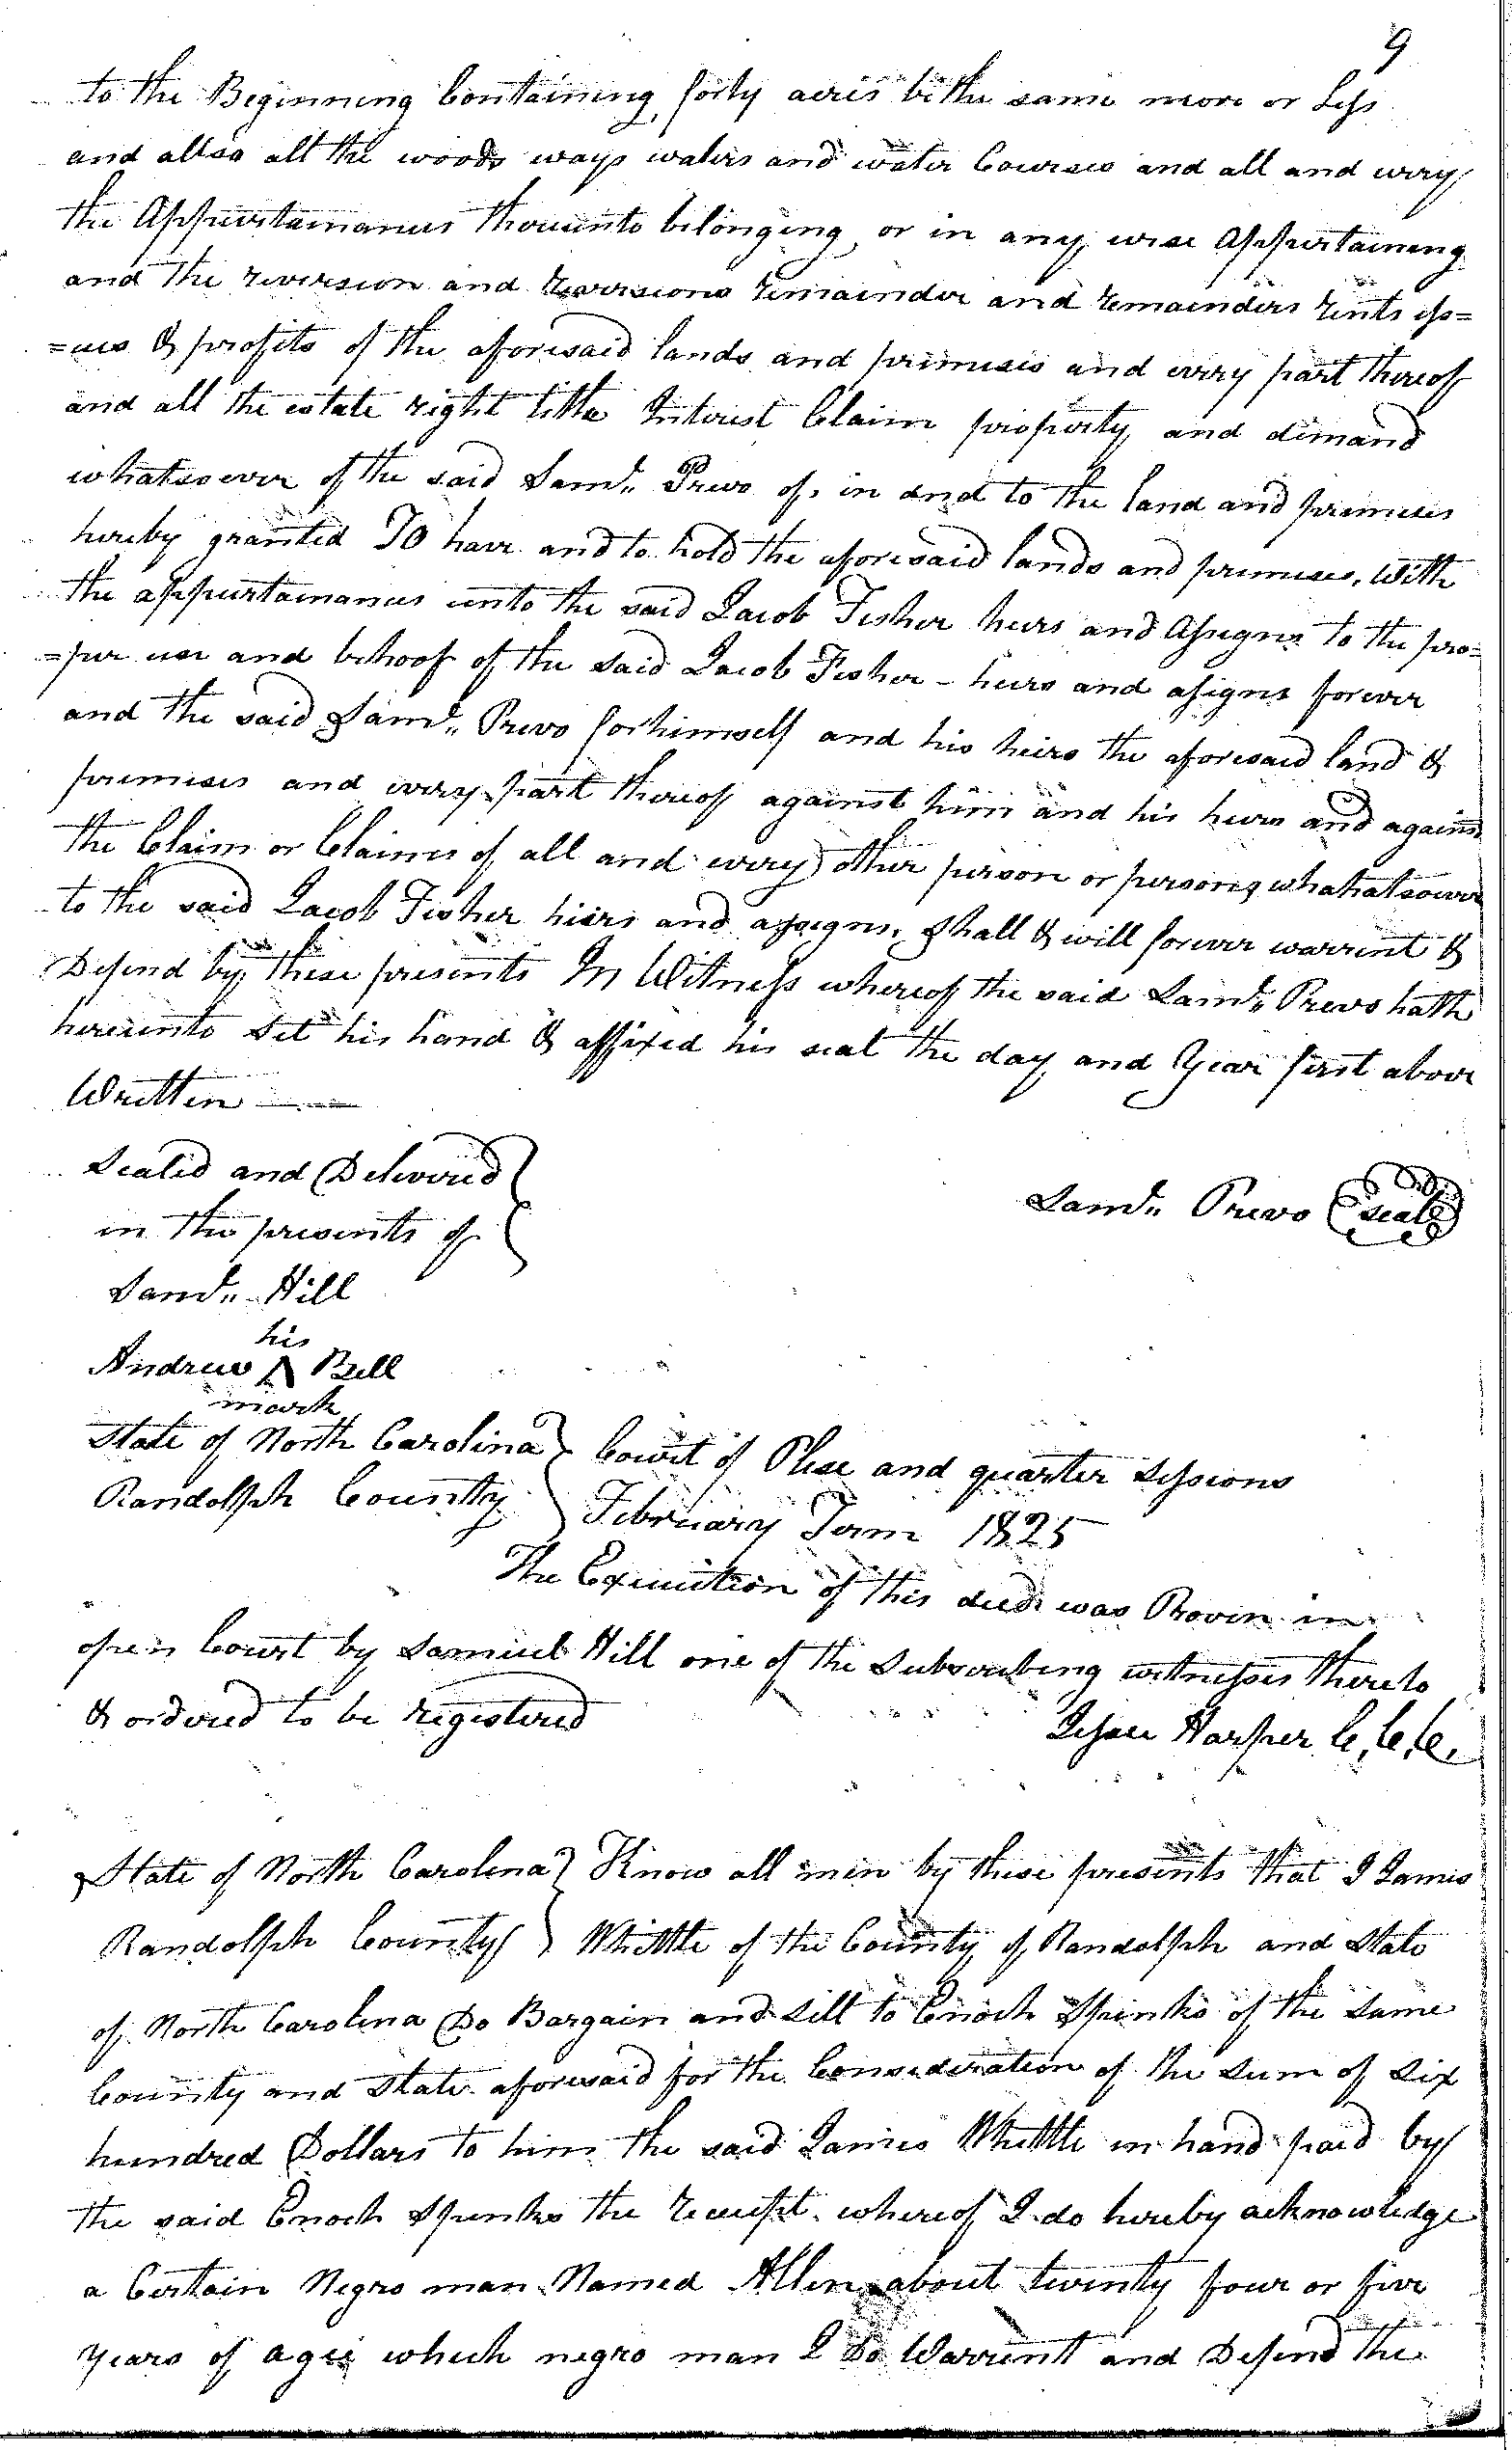 9
to the Beginning Containing forty acres be the same more or Less
and allso all the woods ways waters and water Courses and all and every
the Appurtainances thereunto belonging or in any wise Appertaining
and the reversion and reversions remainder and remainders rents iss=
=ues & profits of the aforesaid lands and primeses and every part thereof
and all the estate right title Interest Claim property and demand
whatsoever of the said Saml. Prevo of, in and to the land and premises
hereby granted TO have and to hold the aforesaid lands and premises, With
the appurtainances unto the said Jacob Fisher heirs and Assigns to the pro=
=per use and behoof of the said Jacob Fisher - heirs and assigns forever
and the said Saml. Prevo for himself and his heirs the aforesaid land &
premises and every part thereof against him and his heirs and against
the Claim or Claims of all and every other person or persons whahatsoever
to the said Jacob Fisher hiers and assigns, Shall & will forever warrent &
Defend by these presents In Witness whereof the said Saml. Prevo hath
hereunto Set his hand & affixed his seal the day and Year first above
Written
Sealed and Delivered
in the presents of
Saml. Prevo seal
Saml. Hill
his
Andrew A Bell
mark
State of North Carolina } Court of Plese and quarter Sessions
Randolph County } February Term 1825
The Execution of this deed was Proven in
open Court by Samuel Hill one of the Subscribing witnesses thereto
& ordered to be registered
Jesse Harper C,C,C,
State of North Carolina } Know all men by these presents that I James
Randolph County } Whittle of the County of Randolph and State
of North Carolina Do Bargain and Sell to Enoch Spinks of the Same
County and State aforesaid for the Consideration of the Sum of Six
hundred Dollars to him the said James Whittle in hand paid by
the said Enoch Spinks the receipt whereof I do hereby acknowledge
a Certain Negro man Named Allen about twenty four or five
years of agee which negro man I Do Warrent and Defend the